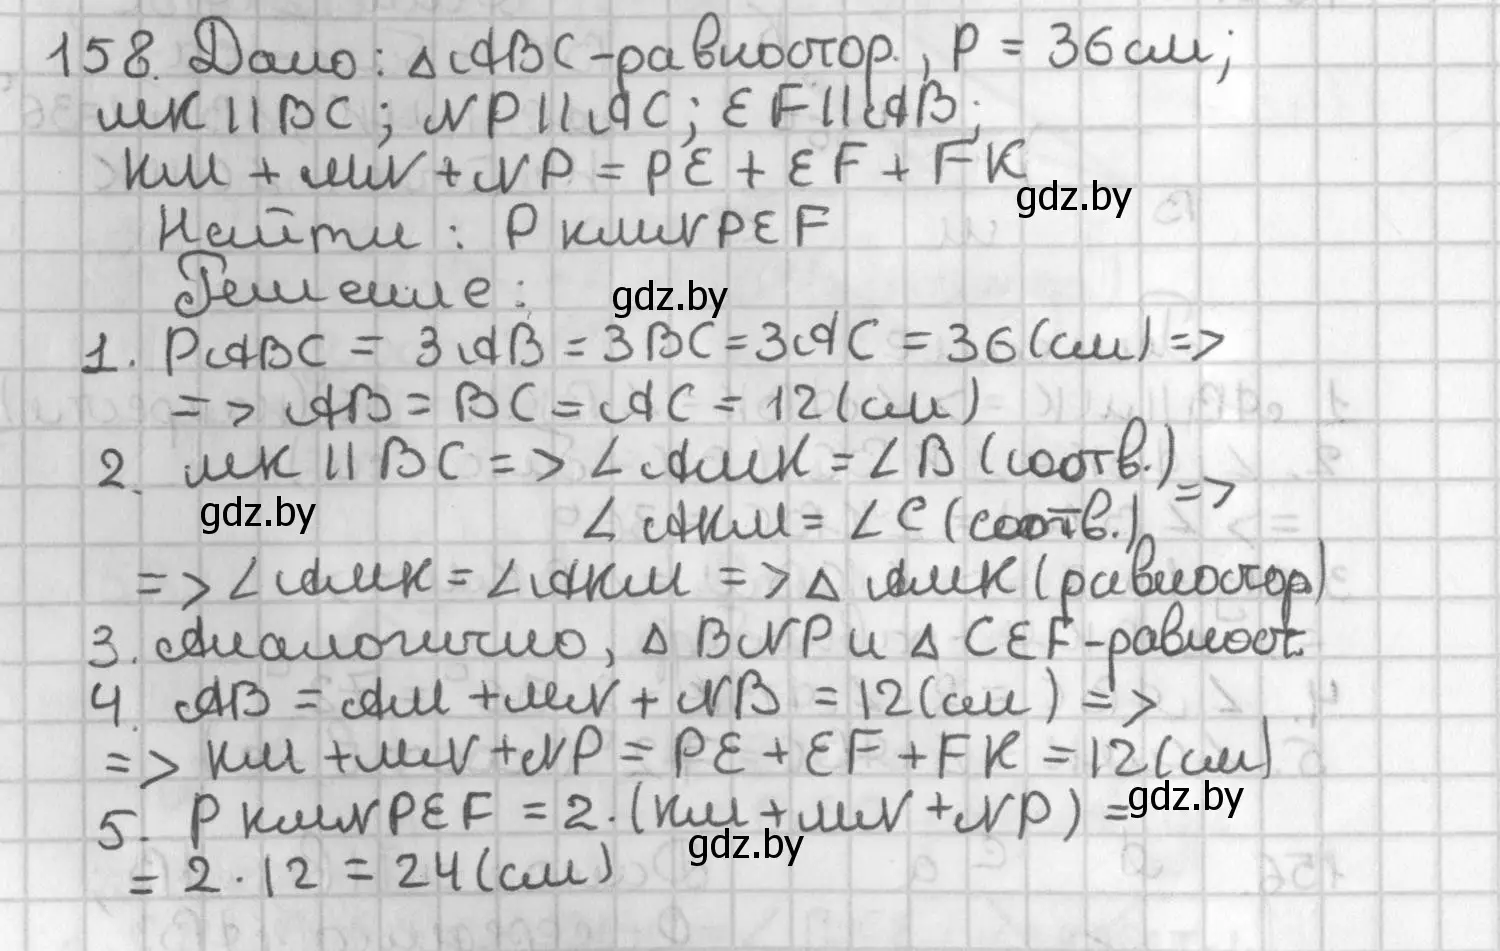 158. Дано: △ABC-равностор., P = 36 см;
MK || BC; NP || AC; EF || AB;
KM + MN + NP = PE + EF + FK
gdz.by
Найти: P KMNPEF
Решение:
gdz.by
1. PABC = 3AB = 3BC = 3AC = 36 (см) =>
=> AB = BC = AC = 12 (см)
2. MK || BC => ∠AMK = ∠B (соотв.)
gdz.by
∠AKM = ∠C (соотв.) =>
=> ∠AMK = ∠AKM => △ AMK (равностор)
3. Аналогично, △ BNP и △ CEF-равност.
4. AB = AM + MN + NB = 12 (см) =>
=> KM + MN + NP = PE + EF + FK = 12 (см)
gdz.by
5. P KMNPEF = 2·(KM + MN + NP) =
gdz.by
= 2·12 = 24 (см)